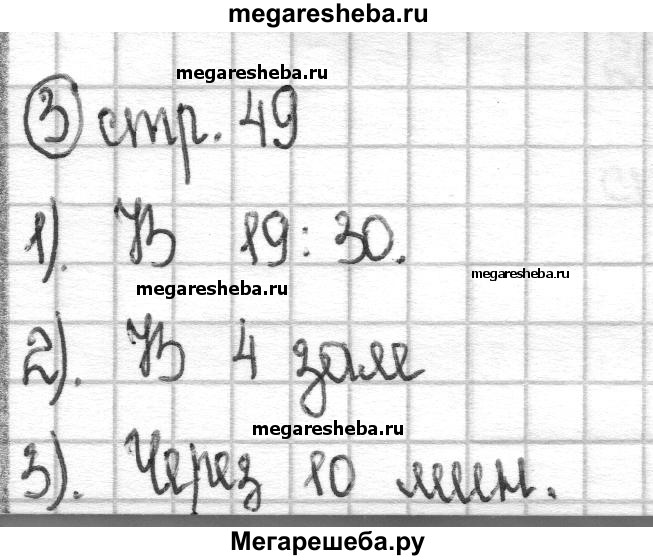 megaresheba.ru
megaresheba.ru
3 стр. 49
1). В 19:30.
megaresheba.ru
megaresheba.ru
2). В 4 зале
megaresheba.ru
3). Через 10 мин.
Мегарешеба.ру